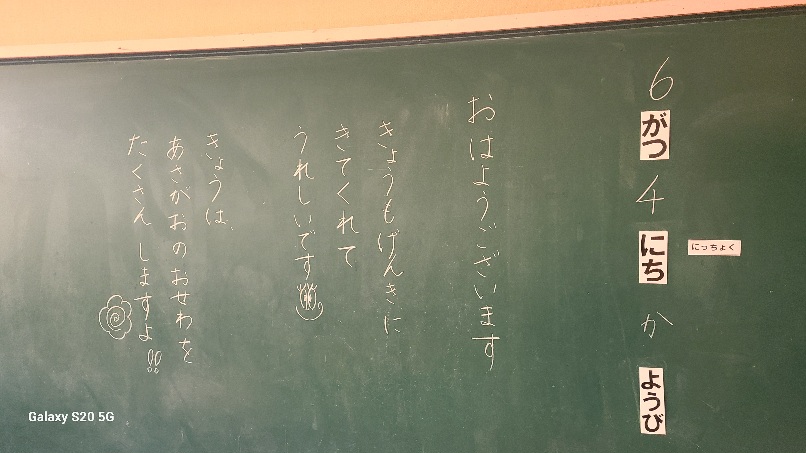 6がつ4にちかようび
にっちょく
おはようございます
きょうもげんきに
きてくれて
うれしいです
きょうは、
あさがおのおせわを
たくさんしますよ!!
Galaxy S20 5G